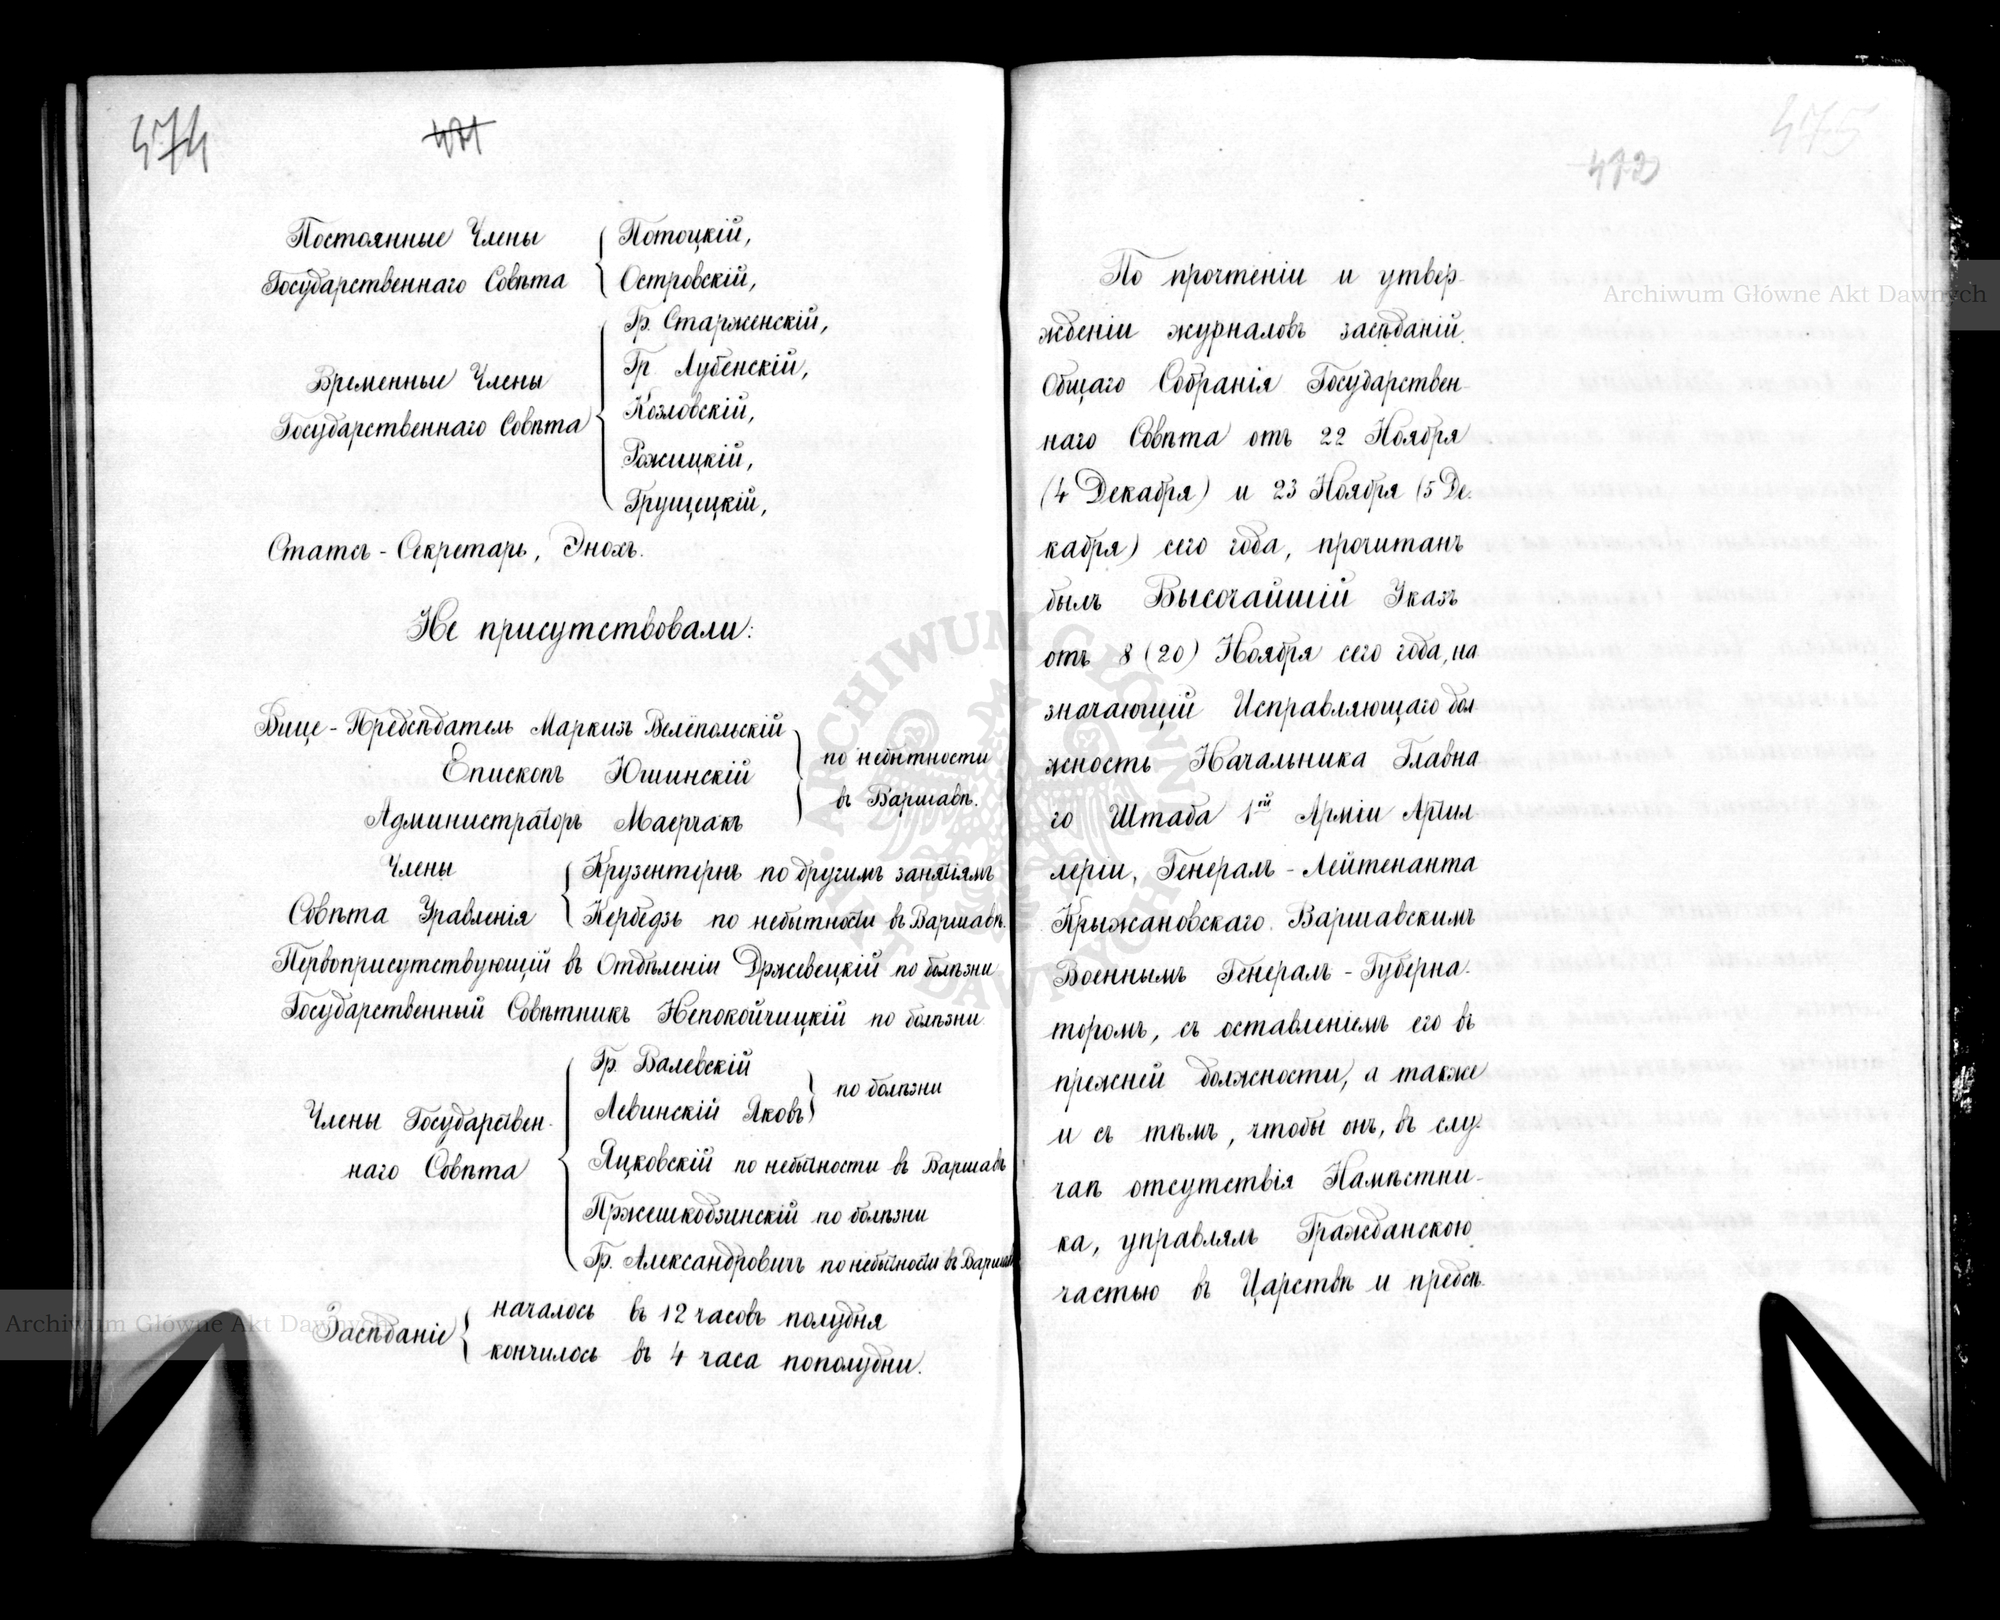 474
471
Постоянные Члены
Государственнаго Совѣта
Потоцкій,
Островскій,
Временные Члены
Государственнаго Совѣта
Гр. Старженскій,
Гр. Лубенскій,
Козловскій,
Рожицкій,
Грущецкій,
Статсъ-Секретарь, Энохъ.
Не присутствовали:
Вице-Предсѣдатель Маркизъ Велёпольскій
Епископъ Юшинскій
Администраторъ Маерчакъ
по небытности
въ Варшавѣ.
Члены
Совѣта Управленія
Крузентернъ по другимъ занятіямъ
Кербедзь по небытности въ Варшавѣ.
Первоприсутствующій въ Отдѣленіи Држевецкій по болѣзни
Государственный Совѣтникъ Непокойчицкій по болѣзни
Члены Государствен-
наго Совѣта
Гр. Валевскій
Левинскій Яковъ
по болѣзни
Яцковскій по небытности въ Варшавѣ
Пржешкодзинскій по болѣзни
Гр. Александровичъ по небытности въ Варшавѣ
Засѣданіе
началось въ 12 часовъ полудня
кончилось въ 4 часа пополудни.
475
472
По прочтеніи и утвер-
жденіи журналовъ засѣданій
Общаго Собранія Государствен-
наго Совѣта отъ 22 Ноября
(4 Декабря) и 23 Ноября (5 Де-
кабря) сего года, прочитанъ
былъ Высочайшій Указъ
отъ 8 (20) Ноября сего года, на
значающій Исправляющаго дол
жность Начальника Главна
го Штаба 1ой Арміи Артил
леріи, Генералъ-Лейтенанта
Крыжановскаго Варшавскимъ
Военнымъ Генералъ-Губерна-
торомъ, съ оставленіемъ его въ
прежней должности, а также
и съ тѣмъ, чтобы онъ, въ слу-
чаѣ отсутствія Намѣстни-
ка, управлялъ Гражданскою
частью въ Царствѣ и предсѣ-
Archiwum Główne Akt Dawnych
Archiwum Główne Akt Dawnych
ARCHIWUM GŁÓWNE AKT DAWNYCH